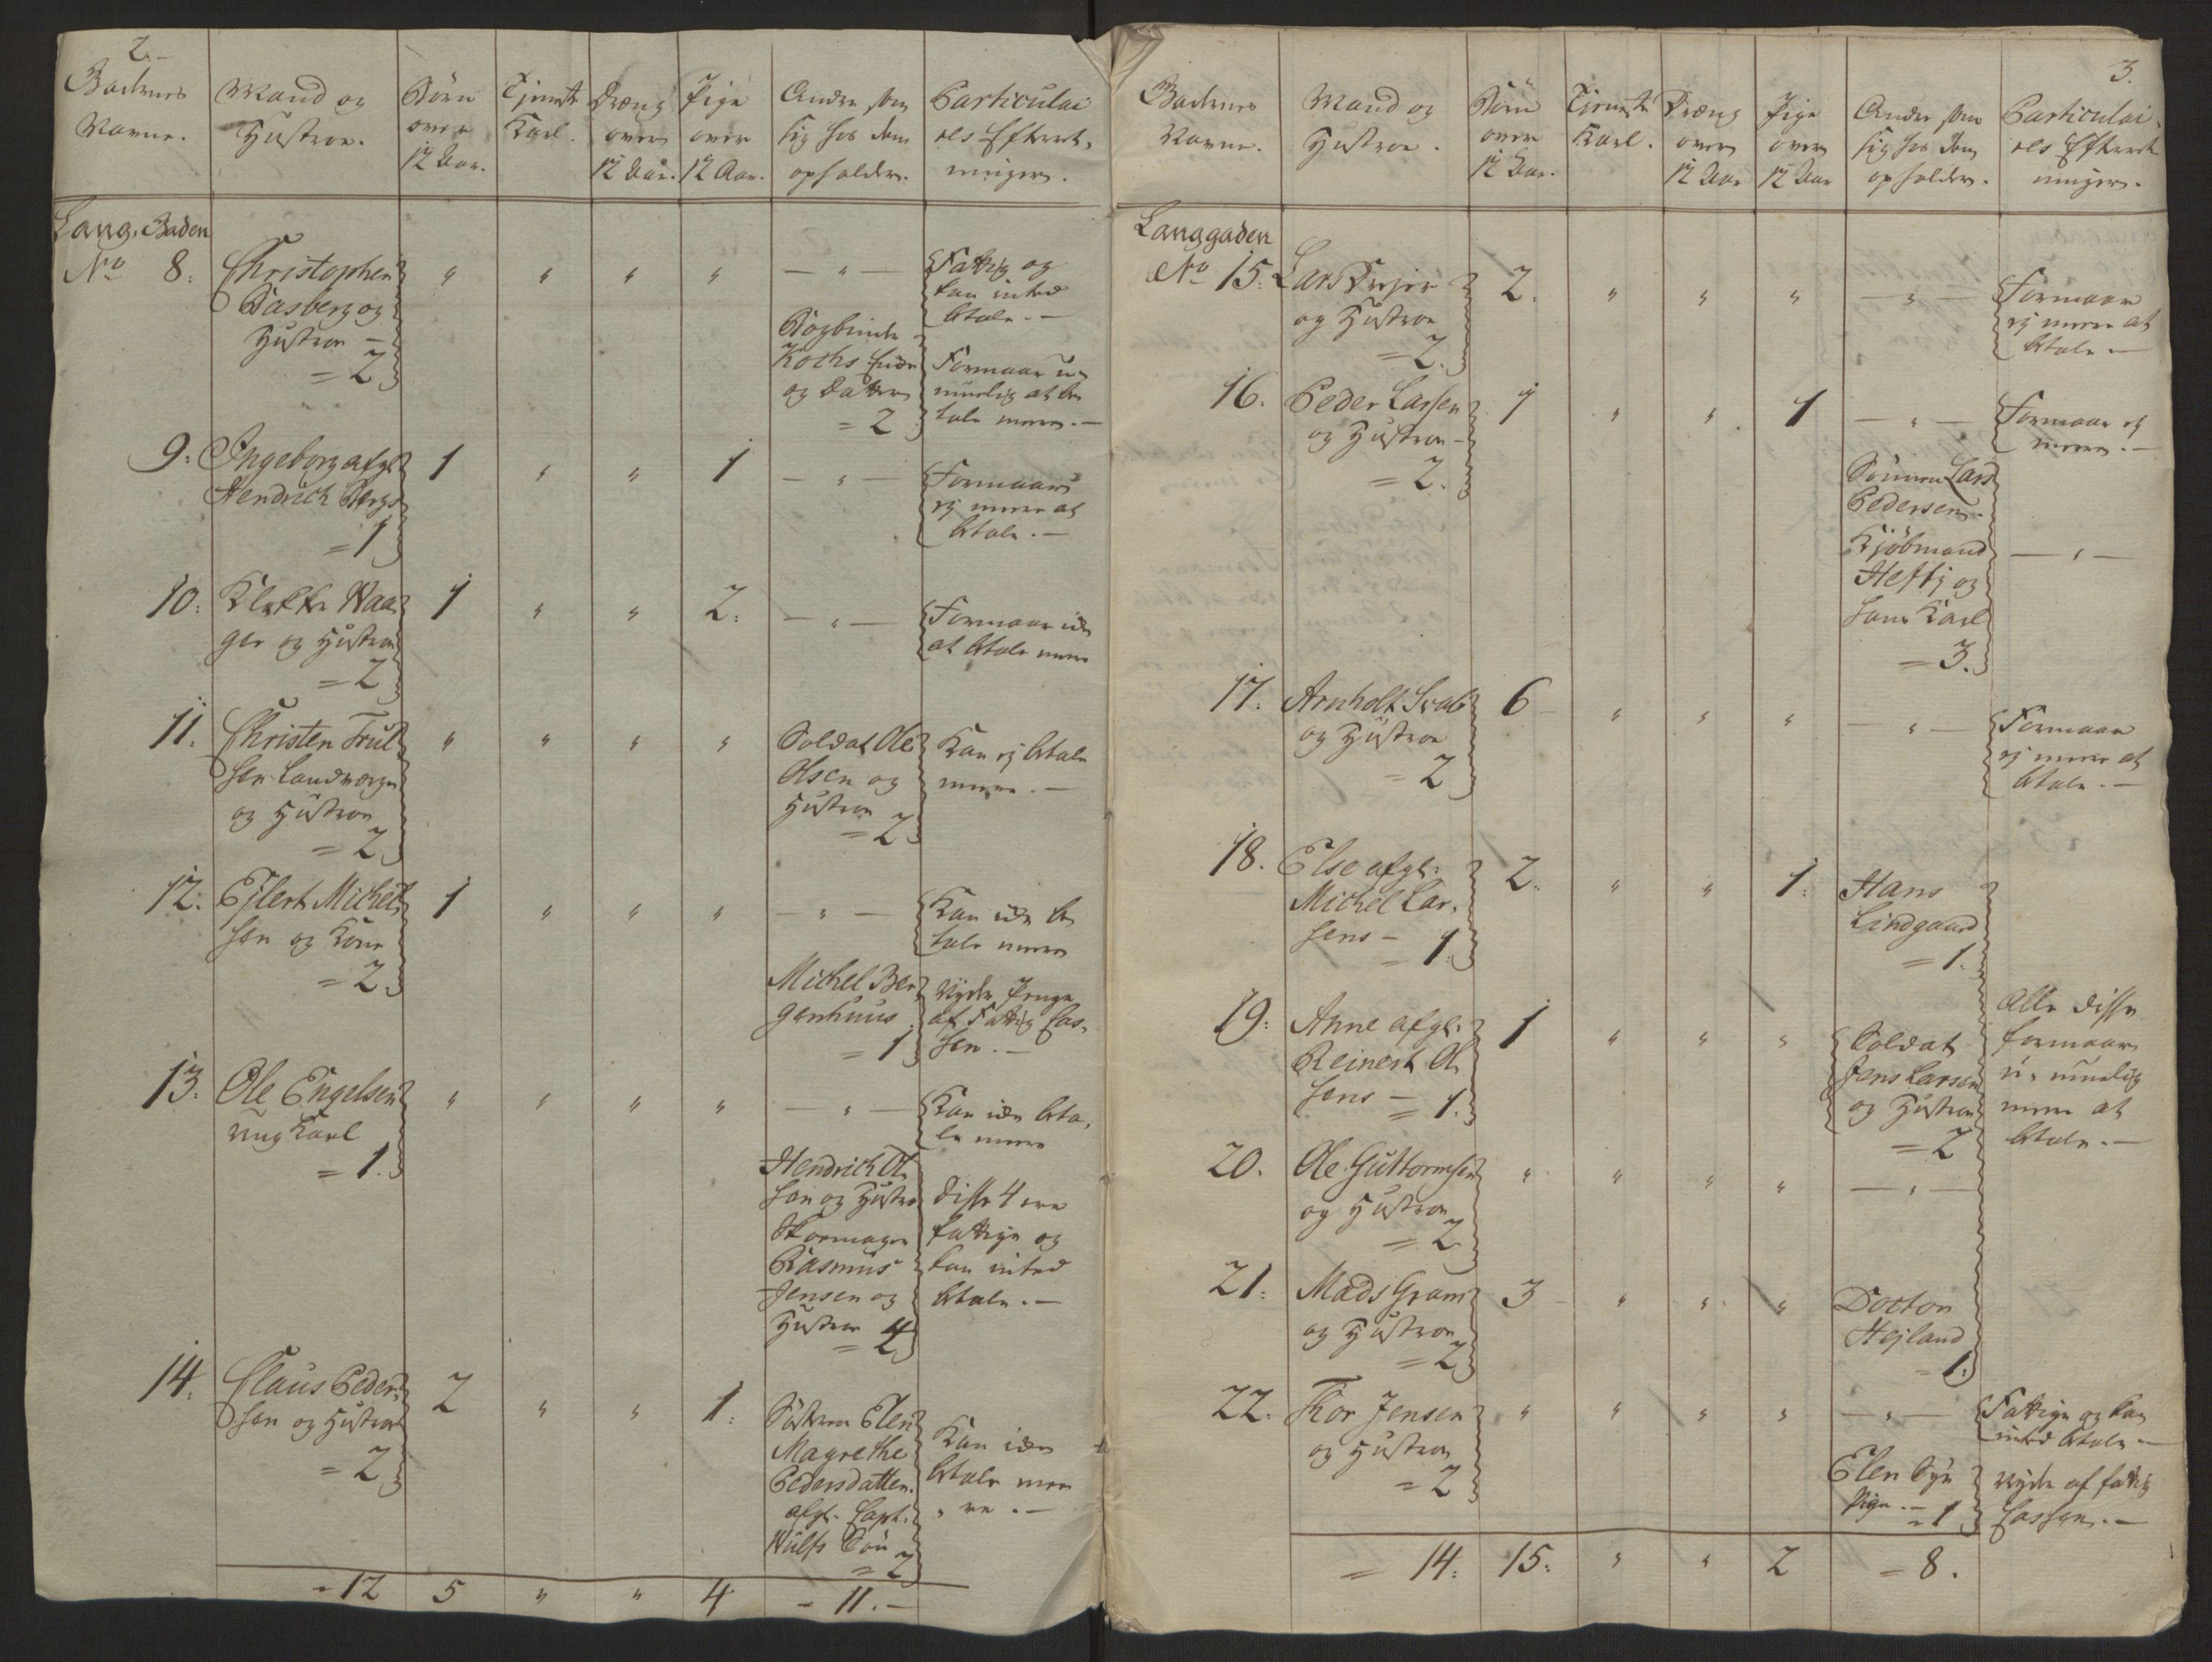 2.
Gadernes
Navne.
Mand og
Hustroe.
Börn
over
12 Aar.
Tjeneste
Karl.
Dreng
over
12 Aar.
Pige
over
12 Aar.
Andre som
sig hos dem
opholder.
Particulai
els Efteret,
ninger.
Lang,Gaden
No 8:
Christopher
Basberg og
Hustroe –
= 2
" " " "
— " —
Fattig og
kan intet
betale. —
Bogbinder
Kochs Enke
og Datter
= 2
Formaar u,
muelig at be
tale mere. —
9:
Ingeborg afgl:
Hendrich Bergs
= 1
1 " " 1
— " —
Formaar
ej mere at
betale. —
10:
Waa,
ger og Hustroe
= 2
1 " " 2.
— " —
Formaar icke
at betale mere
11.
Christen Trul
sen Landværge
og Hustroe
= 2
" " " "
Soldat Ole
Olsen og
Hustroe
= 2
Kan ej betale
mere. —
12.
Ejlert Michel
sen og Kone
= 2
1 " " "
— " —
Kan icke be
tale mere
Michel Ber
genhuus
= 1
Nyder Penge
af Fattig Cas,
sen. —
13.
Ole Engelsen
ung Karl
= 1.
" " " "
— " —
Kan icke beta,
le mere
Hendrich Ol
sen og Hustro
Skoemager
Rasmus
Jensen og
Hustroe 4
Disse 4 ere
fattige og
kan intet
betale. —
14.
Claus Peder,
sen og Hustroe
= 2
2 " " 1.
Søsteren Elen
Magrethe
Pedersdatter.
afgl. Capt.
Wulfs Søn
= 2
Kan icke
betale me
" re. —
= 12 5 " " 4 = 11. —
3.
Gadernes
Navne.
Mand og
Hustroe.
Börn
over
12 Aar.
Tjeneste
Karl.
Dreng
over
12 Aar
Pige
over
12 Aar
Andre som
sig hos dem
opholder.
Particulai,
els Efteret
ninger.
Langgaden
No 15.
Lars
og Hustroe
= 2.
2. " " "
— " —
Formaar
ej mere at
betale. —
16.
Peder Larsen
og Hustroe –
= 2.
1 " " 1
— " —
Formaar ej
mere. —
Sønnen Lars
Pedersen.
Kjöbmand
Heftj og
hans Karl
= 3.
— " —
17.
Arnholt
og Hustroe
= 2
6 " " "
— " —
Formaar
ej mere at
betale. —
18.
Else afgl:
Michel Lar,
sens –
= 1.
2. " " 1.
Hans
Lindgaard
= 1.
19.
Anne afgl.
Reinert Ol
sens –
= 1.
1 " " "
Soldat
Jens Larsen
og Hustroe
= 2
Alle disse
formaar
u, muelig
mere at
betale. —
20.
Ole Guttormsen
og Hustroe
= 2
" " " "
— " —
21.
Mads Gram
og Hustroe
= 2
3 " " "
Docton
Hejland
= 1.
22.
Thor Jensen
og Hustroe
= 2
" " " "
— " —
Fattige og kan
intet betale —
Elen Sye
Pige. – = 1
Nyder af fattig
Cassen. —
= 14. 15. " " 2 = 8.